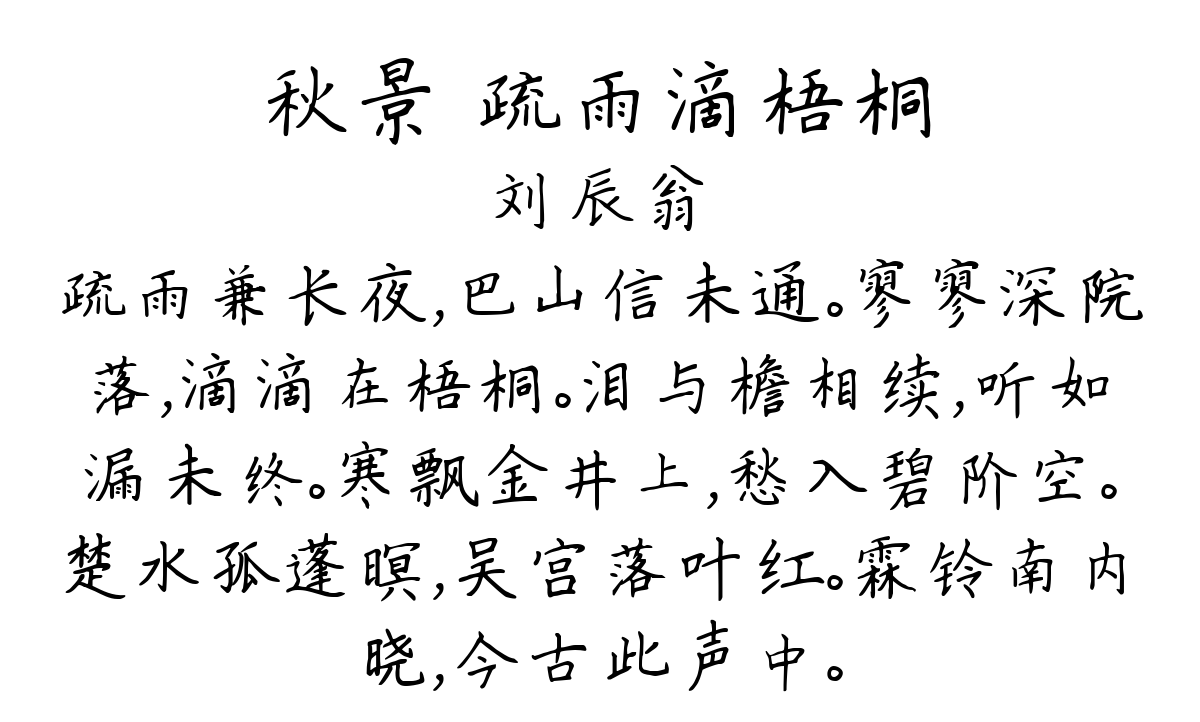 秋景 疏雨滴梧桐
刘辰翁
疏雨兼长夜,巴山信未通。寥寥深院
落,滴滴在梧桐。泪与檐相续,听如
漏未终。寒飘金井上,愁入碧阶空。
楚水孤蓬暝,吴宫落叶红。霖铃南内
晓,今古此声中。